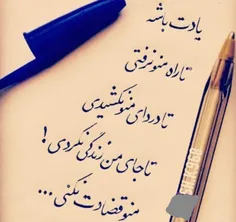 یادت باشه
تا راه منو نرفتی
تا دردای منو نکشیدی
تا جای من زندگی نکردی!
منو قضاوت نکنی...